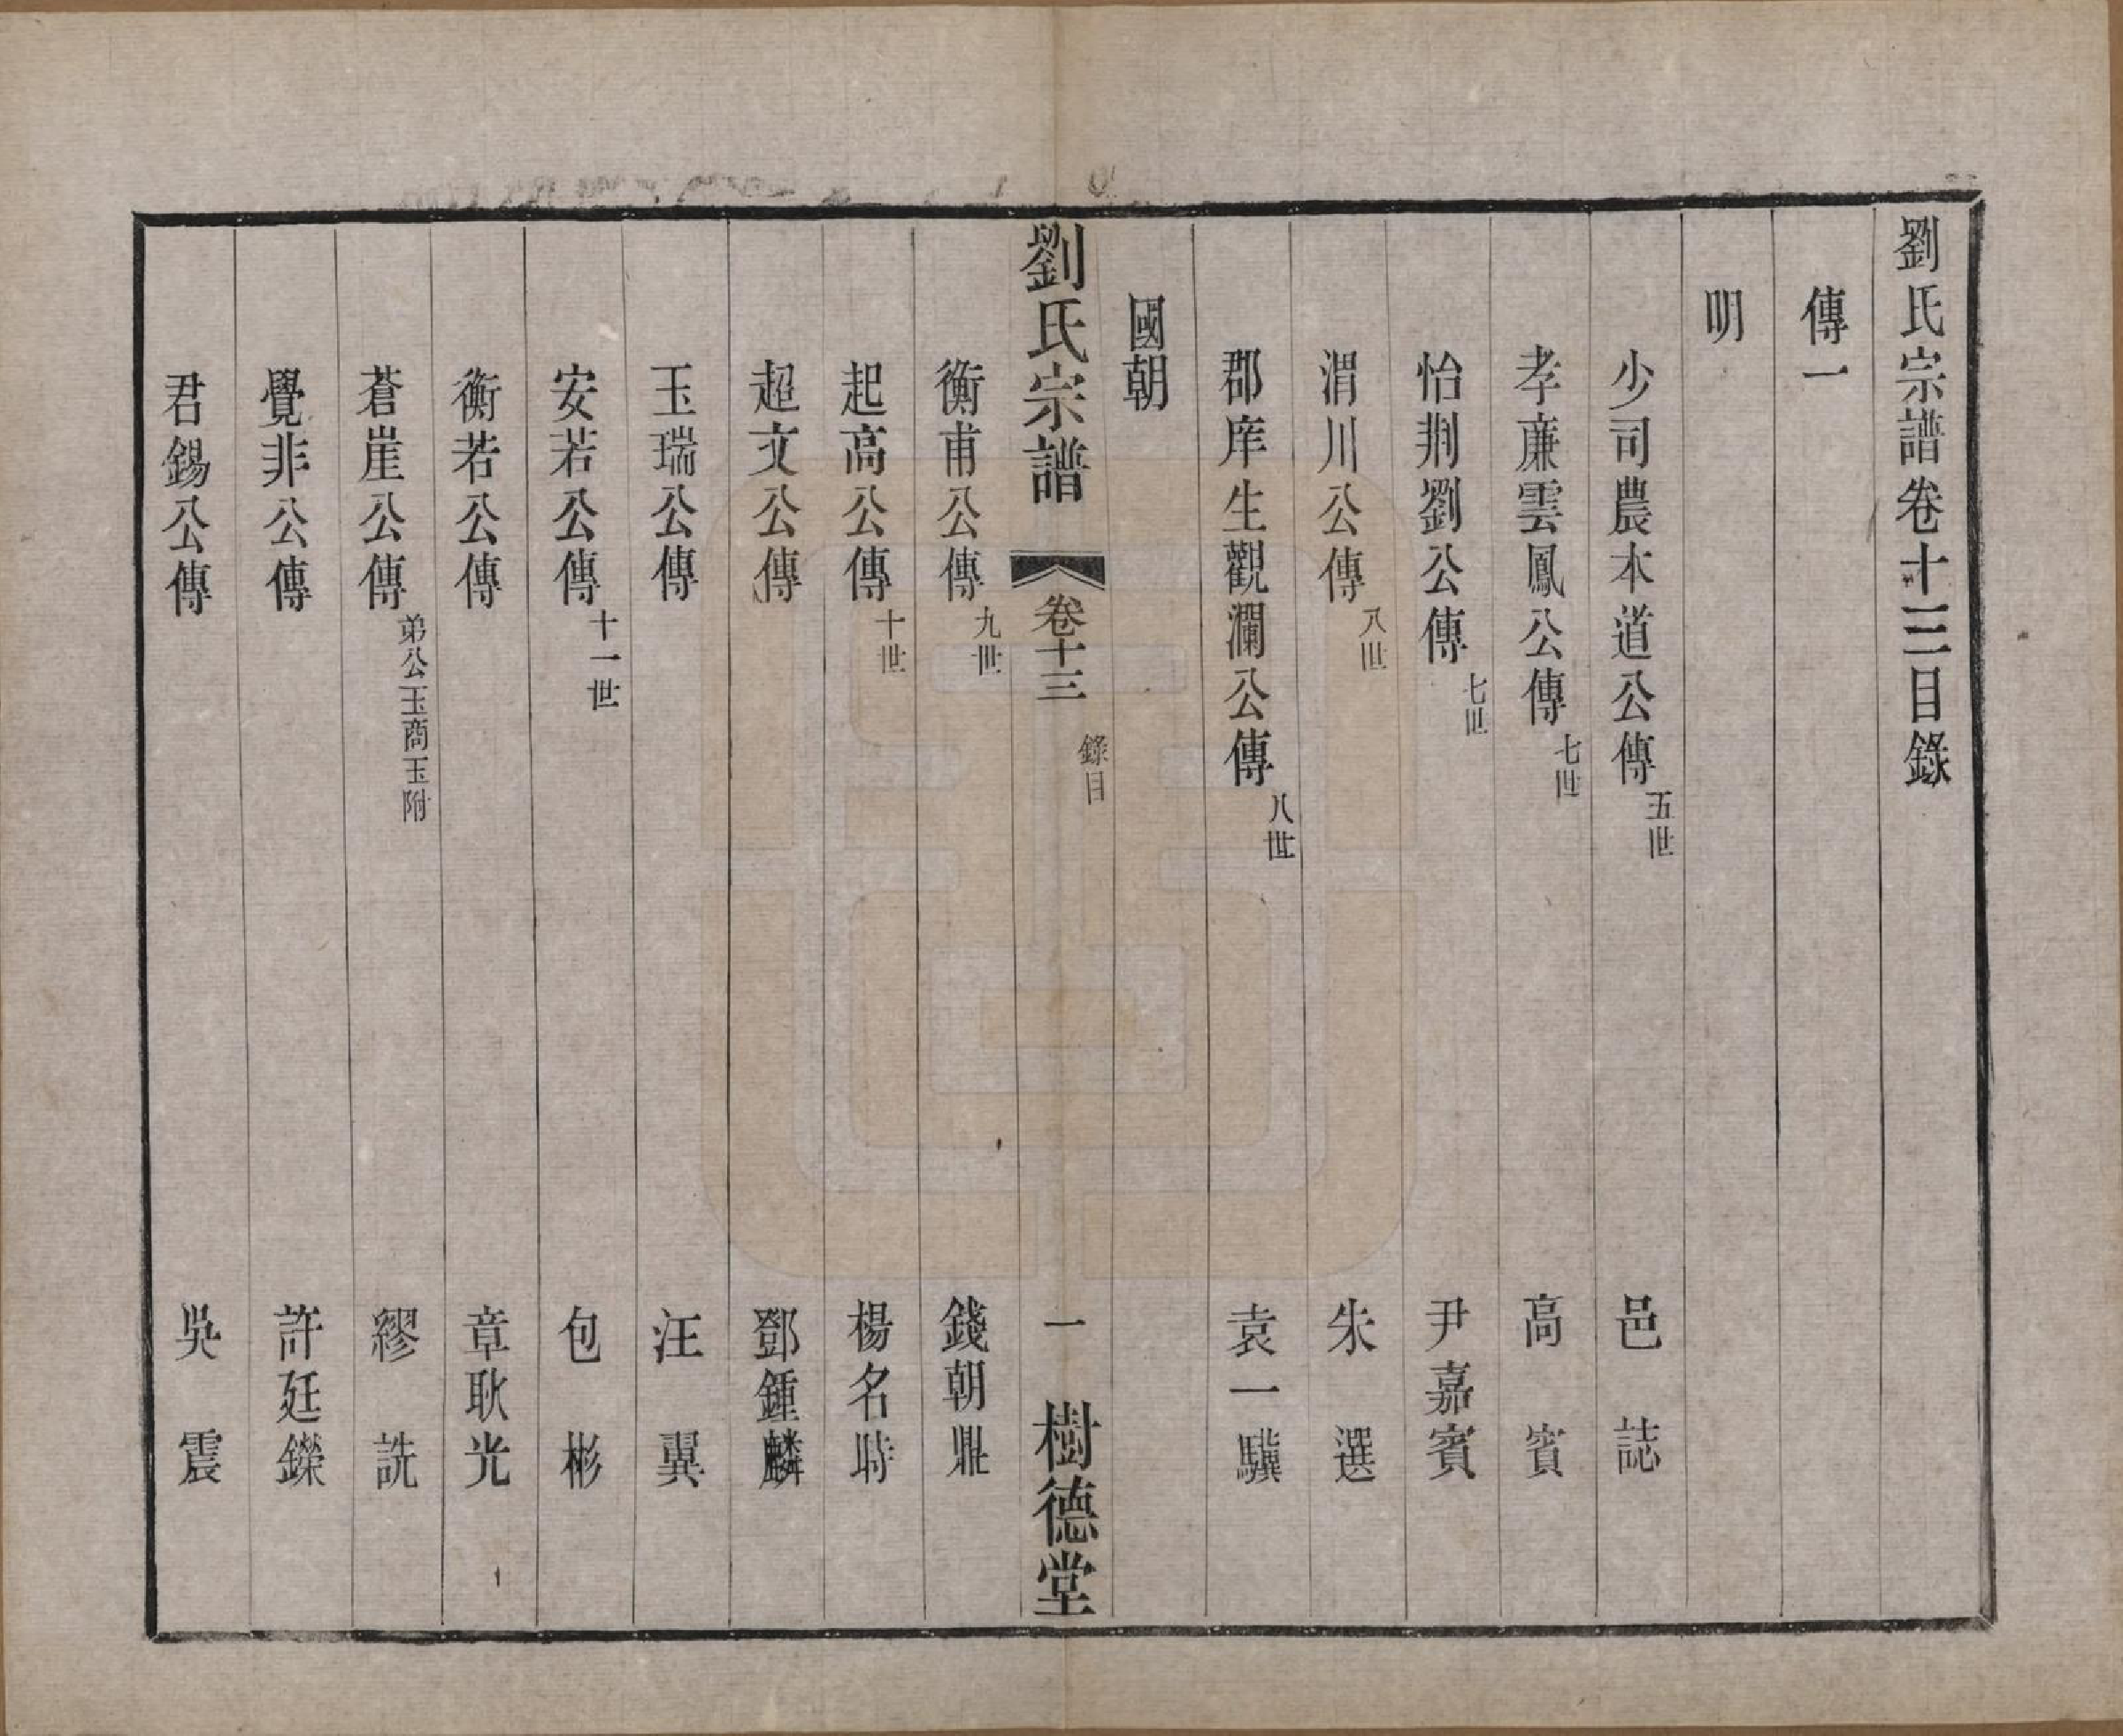 劉氏宗譜卷十三目錄
傳一
明
少司農本道公傳 五世 邑誌
孝廉雲鳳公傳 七世 高賓
怡荆劉公傳 七世 尹嘉賓
渭川公傳 八世 朱選
郡庠生觀瀾公傳 八世 袁一驥
國朝
劉氏宗譜 卷十三 錄目 一 樹德堂
衡甫公傳 九世 錢朝鼎
起高公傳 十世 楊名時
超文公傳 鄧鍾麟
玉瑞公傳 汪翼
安若公傳 十一世 包彬
衡若公傳 章耿光
蒼崖公傳 弟公玉商玉附 繆詵
覺非公傳 許廷鑅
君錫公傳 吳震